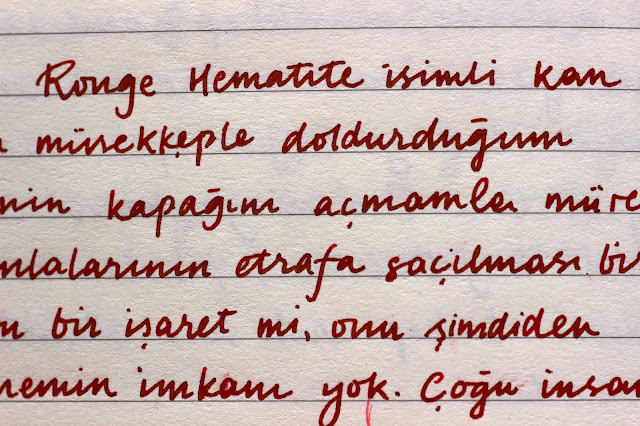 Rouge Hematite isimli kan
mürekkeple doldurduğum
min kapağını açmamla müre
mlalarının etrafa saçılması bir
bir işaret mi, onu şimdiden
memin imkanı yok. Çoğu insan